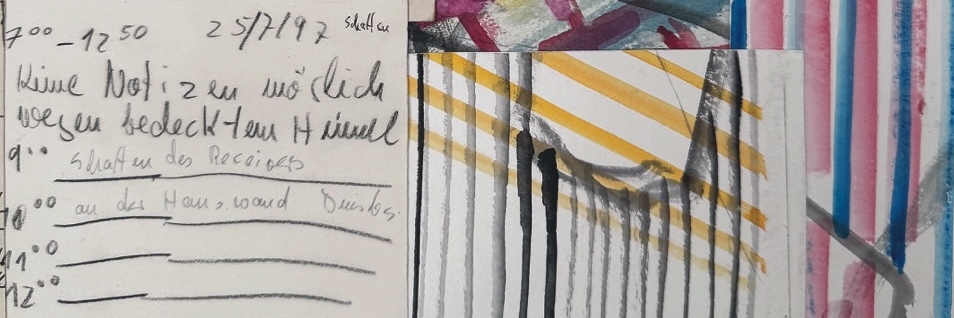 7⁰⁰ - 12⁵⁰ 25/7/97 Schatten
Keine Notizen möglich
wegen bedecktem Himmel
9⁰⁰ Schatten des Receivers
10⁰⁰ an der Hauswand
11⁰⁰
12⁰⁰